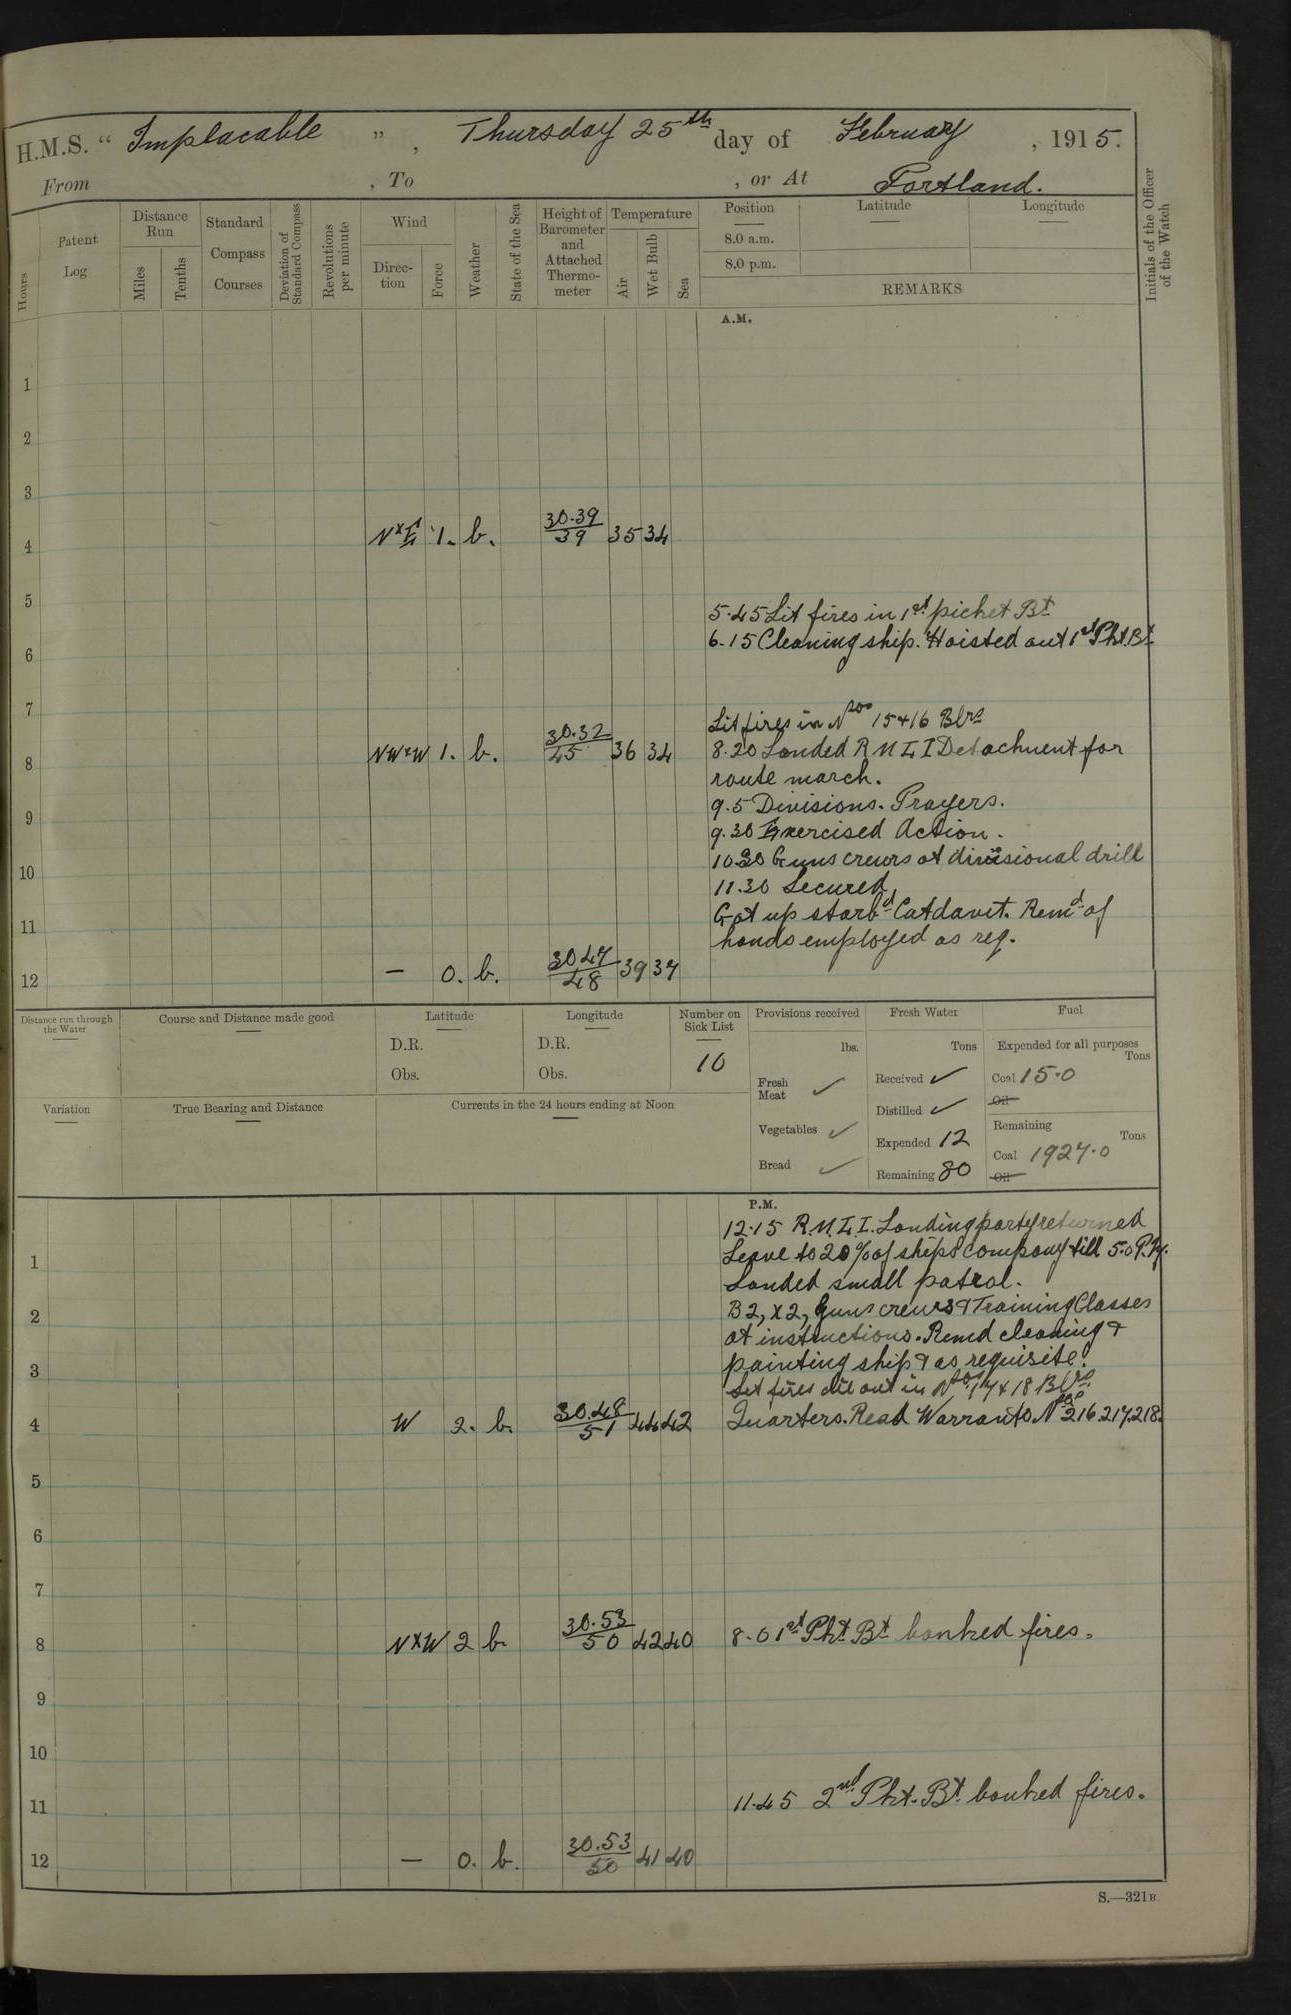 H.M.S. “ Implacable ” , Thursday 25th day of February , 1915.
From , To , or At Portland.
Hours
Patent Log
Distance Run
Miles
Tenths
Standard Compass Courses
Deviation of Standard Compass
Revolutions per minute
Wind
Direction
Force
Weather
State of the Sea
Height of Barometer and Attached Thermometer
Temperature
Air
Wet Bulb
Sea
Position
8.0 a.m.
8.0 p.m.
Latitude
Longitude
REMARKS
Initials of the Officer of the Watch
A.M.
1
2
3
4 NxE 1. b. 30.39/39 35 34
5
5.45 Lit fires in 1st picket Bt
6.15 Cleaning ship. Hoisted out 1st Pkt Bt
6
7
Lit fires in Nos 15+16 Blrs
8 NWxW 1. b. 30.32/45 36 34
8.20 Landed R M L I Detachment for
route march.
9.5 Divisions. Prayers.
9
9.30 Exercised Action.
10.30 Guns crews at divisional drill
10
11.30 Secured
Got up starbd Catdavit. Remd of
11
hands employed as req.
12 — 0. b. 30.47/48 39 37
Distance run through the Water
Course and Distance made good
Latitude
D.R.
Obs.
Longitude
D.R.
Obs.
Number on Sick List
10
Provisions received
lbs.
Fresh Meat ✓
Vegetables ✓
Bread ✓
Fresh Water
Tons
Received ✓
Distilled ✓
Expended 12
Remaining 80
Fuel
Expended for all purposes
Tons
Coal 15.0
Oil
Remaining
Tons
Coal 1927.0
Oil
Variation
True Bearing and Distance
Currents in the 24 hours ending at Noon
P.M.
12.15 R.M.L.I. Landing party returned
Leave to 20% of ships company till 5.0 P.M.
1
Landed small patrol.
B2, X2, Guns crews & Training Classes
2
at instructions. Remd cleaning &
painting ship & as requisite.
3
Let fires die out in Nos 17 & 18 Blrs.
4 W 2. b. 30.48/51 44 42
Quarters. Read Warrants Nos 216 217 218.
5
6
7
8 NxW 2 b. 30.53/50 42 40
8.0 1st Pkt Bt banked fires.
9
10
11
11.45 2nd Pkt. Bt. banked fires.
12 — 0. b. 30.53/50 41 40
S.—321B.